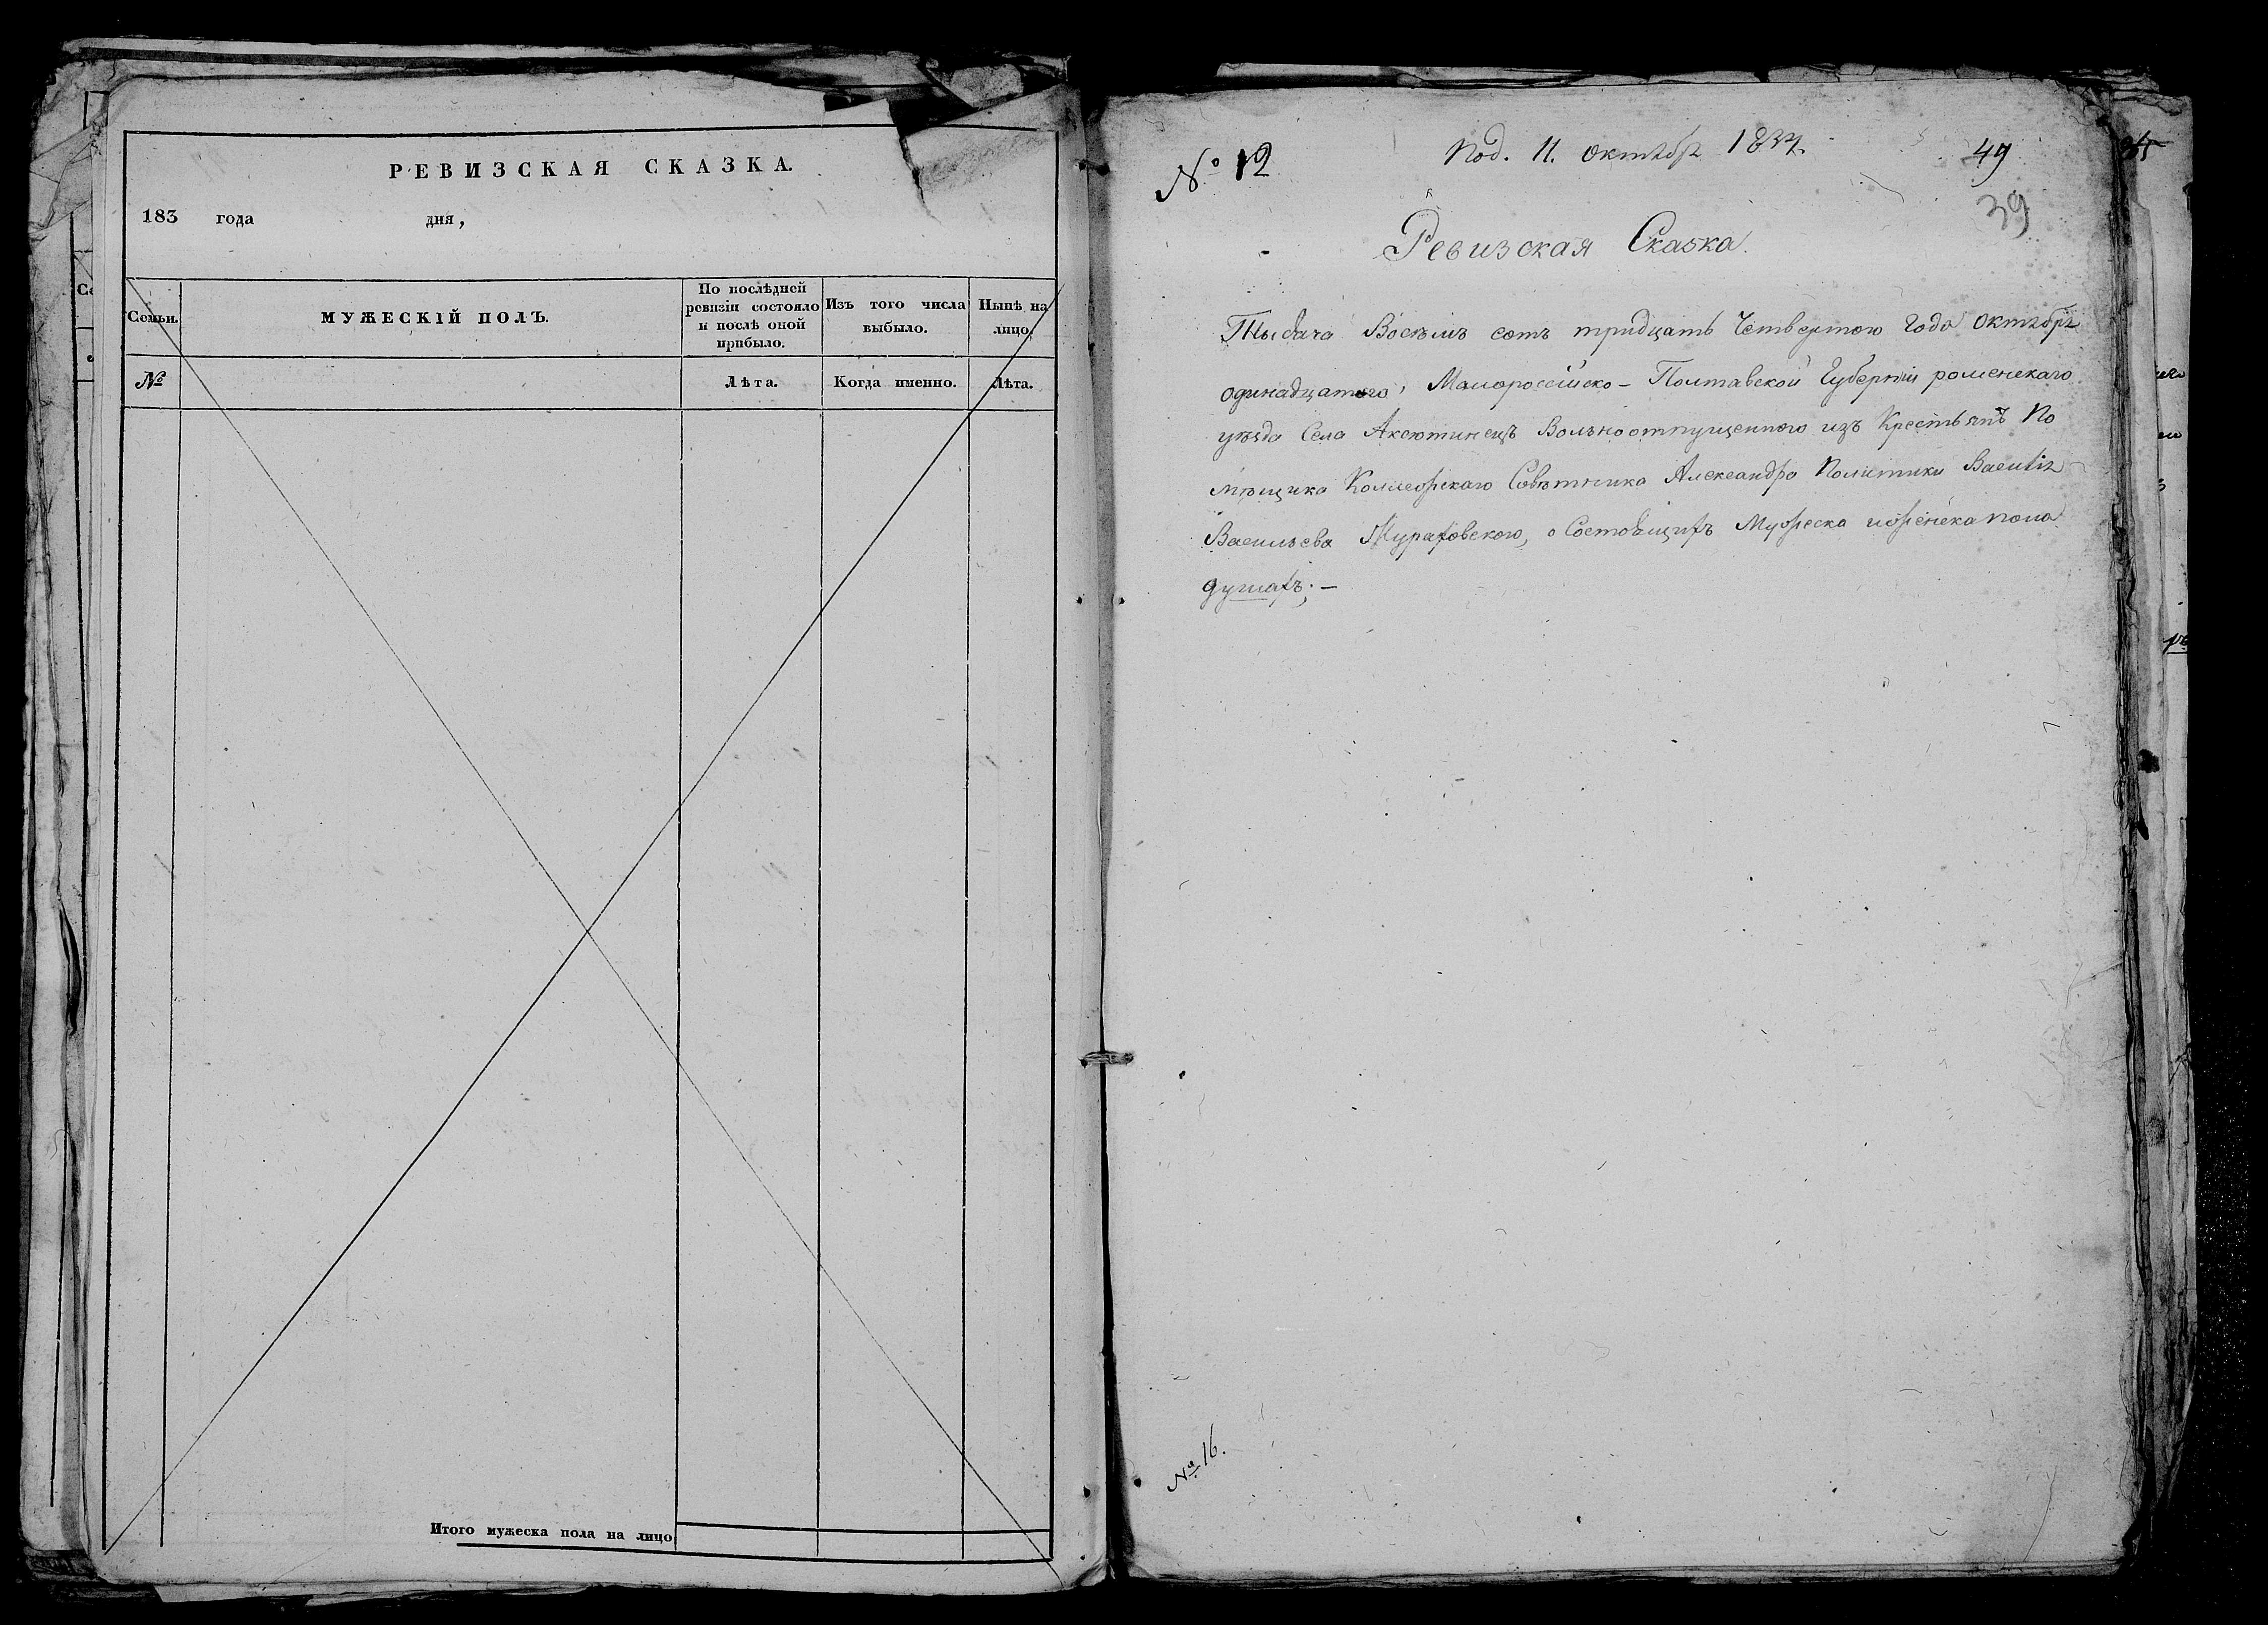 РЕВИЗСКАЯ СКАЗКА.
183 года дня,
Семьи.
МУЖЕСКІЙ ПОЛЪ.
По послѣдней
ревизіи состояло
и послѣ оной
прибыло.
Изъ того числа
выбыло.
Нынѣ на
лицо.
№
Лѣта.
Когда именно.
Лѣта.
Итого мужеска пола на лицо
№ 12
Под. 11. октября 1834.
49
39
Ревизская Сказка.
Тысяча Восемь сотъ тридцать Четвертого Года октября
одинадцатого, Малороссійско-Полтавской Губерніи роменскаго
уѣзда Села Аксютинецъ Вольноотпущенного изъ Крестьянъ По
мѣщика Коллежскаго Совѣтника Александра Полетики Василія
Васильева Жураховского, о Состоящихъ Мужеска иженска пола
душахъ; —
№ 16.